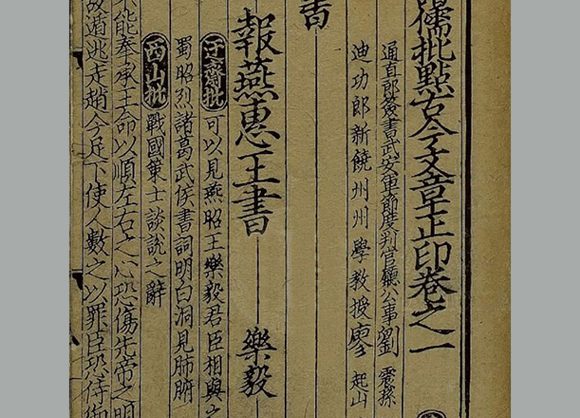 儒批點古今文章正印卷之一
通直郎簽書武安軍節度判官廳公事劉震孫
迪功郎新饒州州學教授廖起山
書
報燕惠王書 樂毅
迂齋批 可以見燕昭王樂毅君臣相與之
蜀昭烈諸葛武侯書詞明白洞見肺腑
西山批 戰國策士談說之辭
不能奉承王命以順左右之心恐傷先帝之明
故遁逃走趙今足下使人數之以罪臣恐侍御